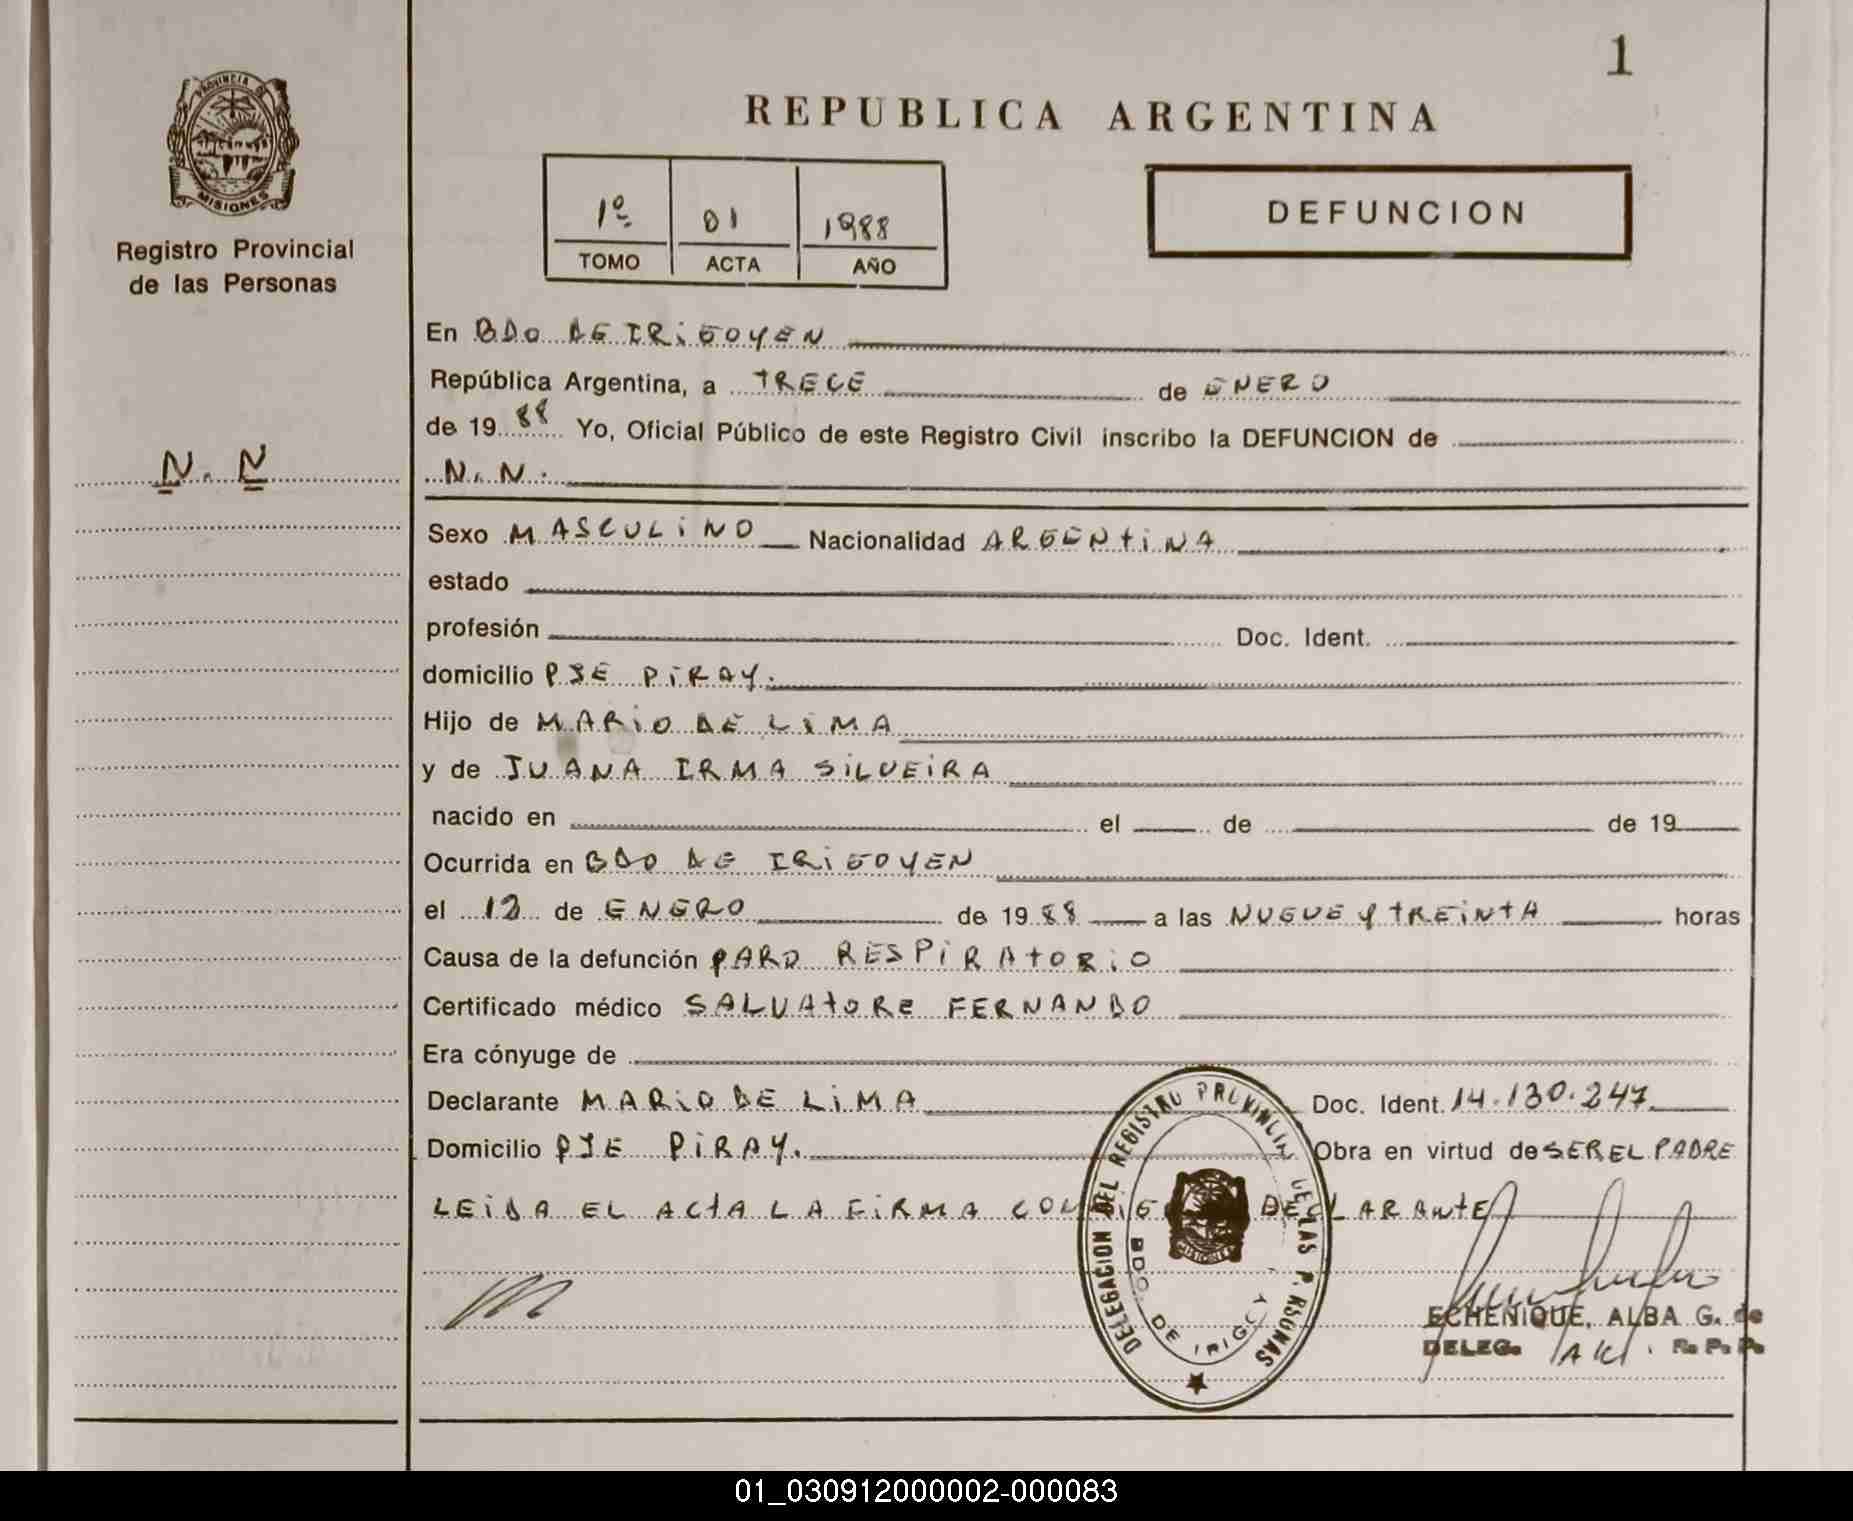 1
PROVINCIA D
MISIONES
Registro Provincial
de las Personas
REPUBLICA ARGENTINA
1º 01 1988
TOMO ACTA AÑO
DEFUNCION
En BDO DE IRiGOYEN
República Argentina, a TRECE de ENERO
de 19 88 Yo, Oficial Público de este Registro Civil inscribo la DEFUNCION de
N. N
N. N.
Sexo MASCULiNO Nacionalidad ARGENtiNA
estado
profesión Doc. Ident.
domicilio PJE PiRAY.
Hijo de MARiO DE LiMA
y de JUANA IRMA SiLVEiRA
nacido en el de de 19
Ocurrida en BDO DE IRiGOYEN
el 12 de ENERO de 19 88 a las NUEVE y tREiNtA horas
Causa de la defunción PARO RESPiRAtORiO
Certificado médico SALVAtORE FERNANDO
Era cónyuge de
Declarante MARiO DE LiMA Doc. Ident. 14.130.247
Domicilio PJE PiRAY. Obra en virtud de SER EL PADRE
LEiDA EL ACtA LA FiRMA DECLARANtE
DELEGACION DEL REGISTRO PROVINCIAL DE LAS P RSONAS
MISIONES
BDO. DE IRIGOY
ECHENIQUE, ALBA G. de
DELEG. R. P. P.
01_030912000002-000083